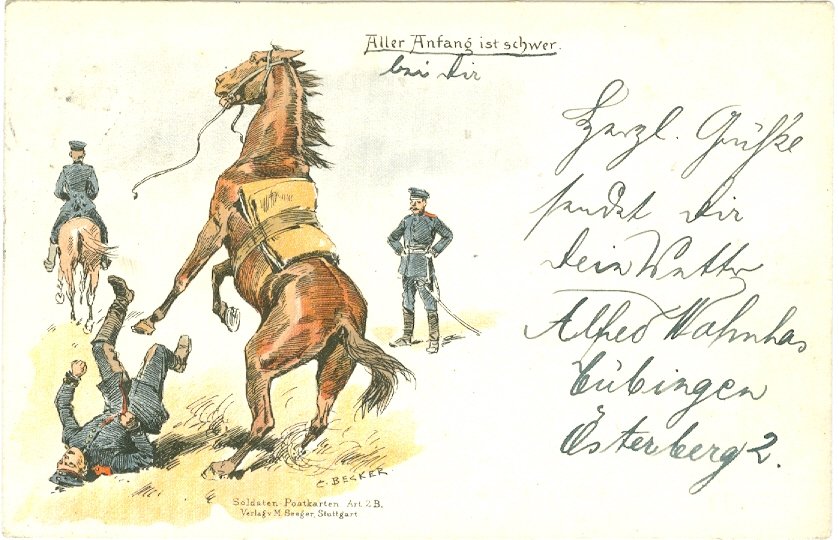 Aller Anfang ist schwer.
bei dir
Herzl. Grüße
sendet dir
dein
Alfred
Tübingen
Österberg 2.
C. BECKER
Soldaten-Postkarten Art 2 B.
Verlag v. M. Seeger, Stuttgart.